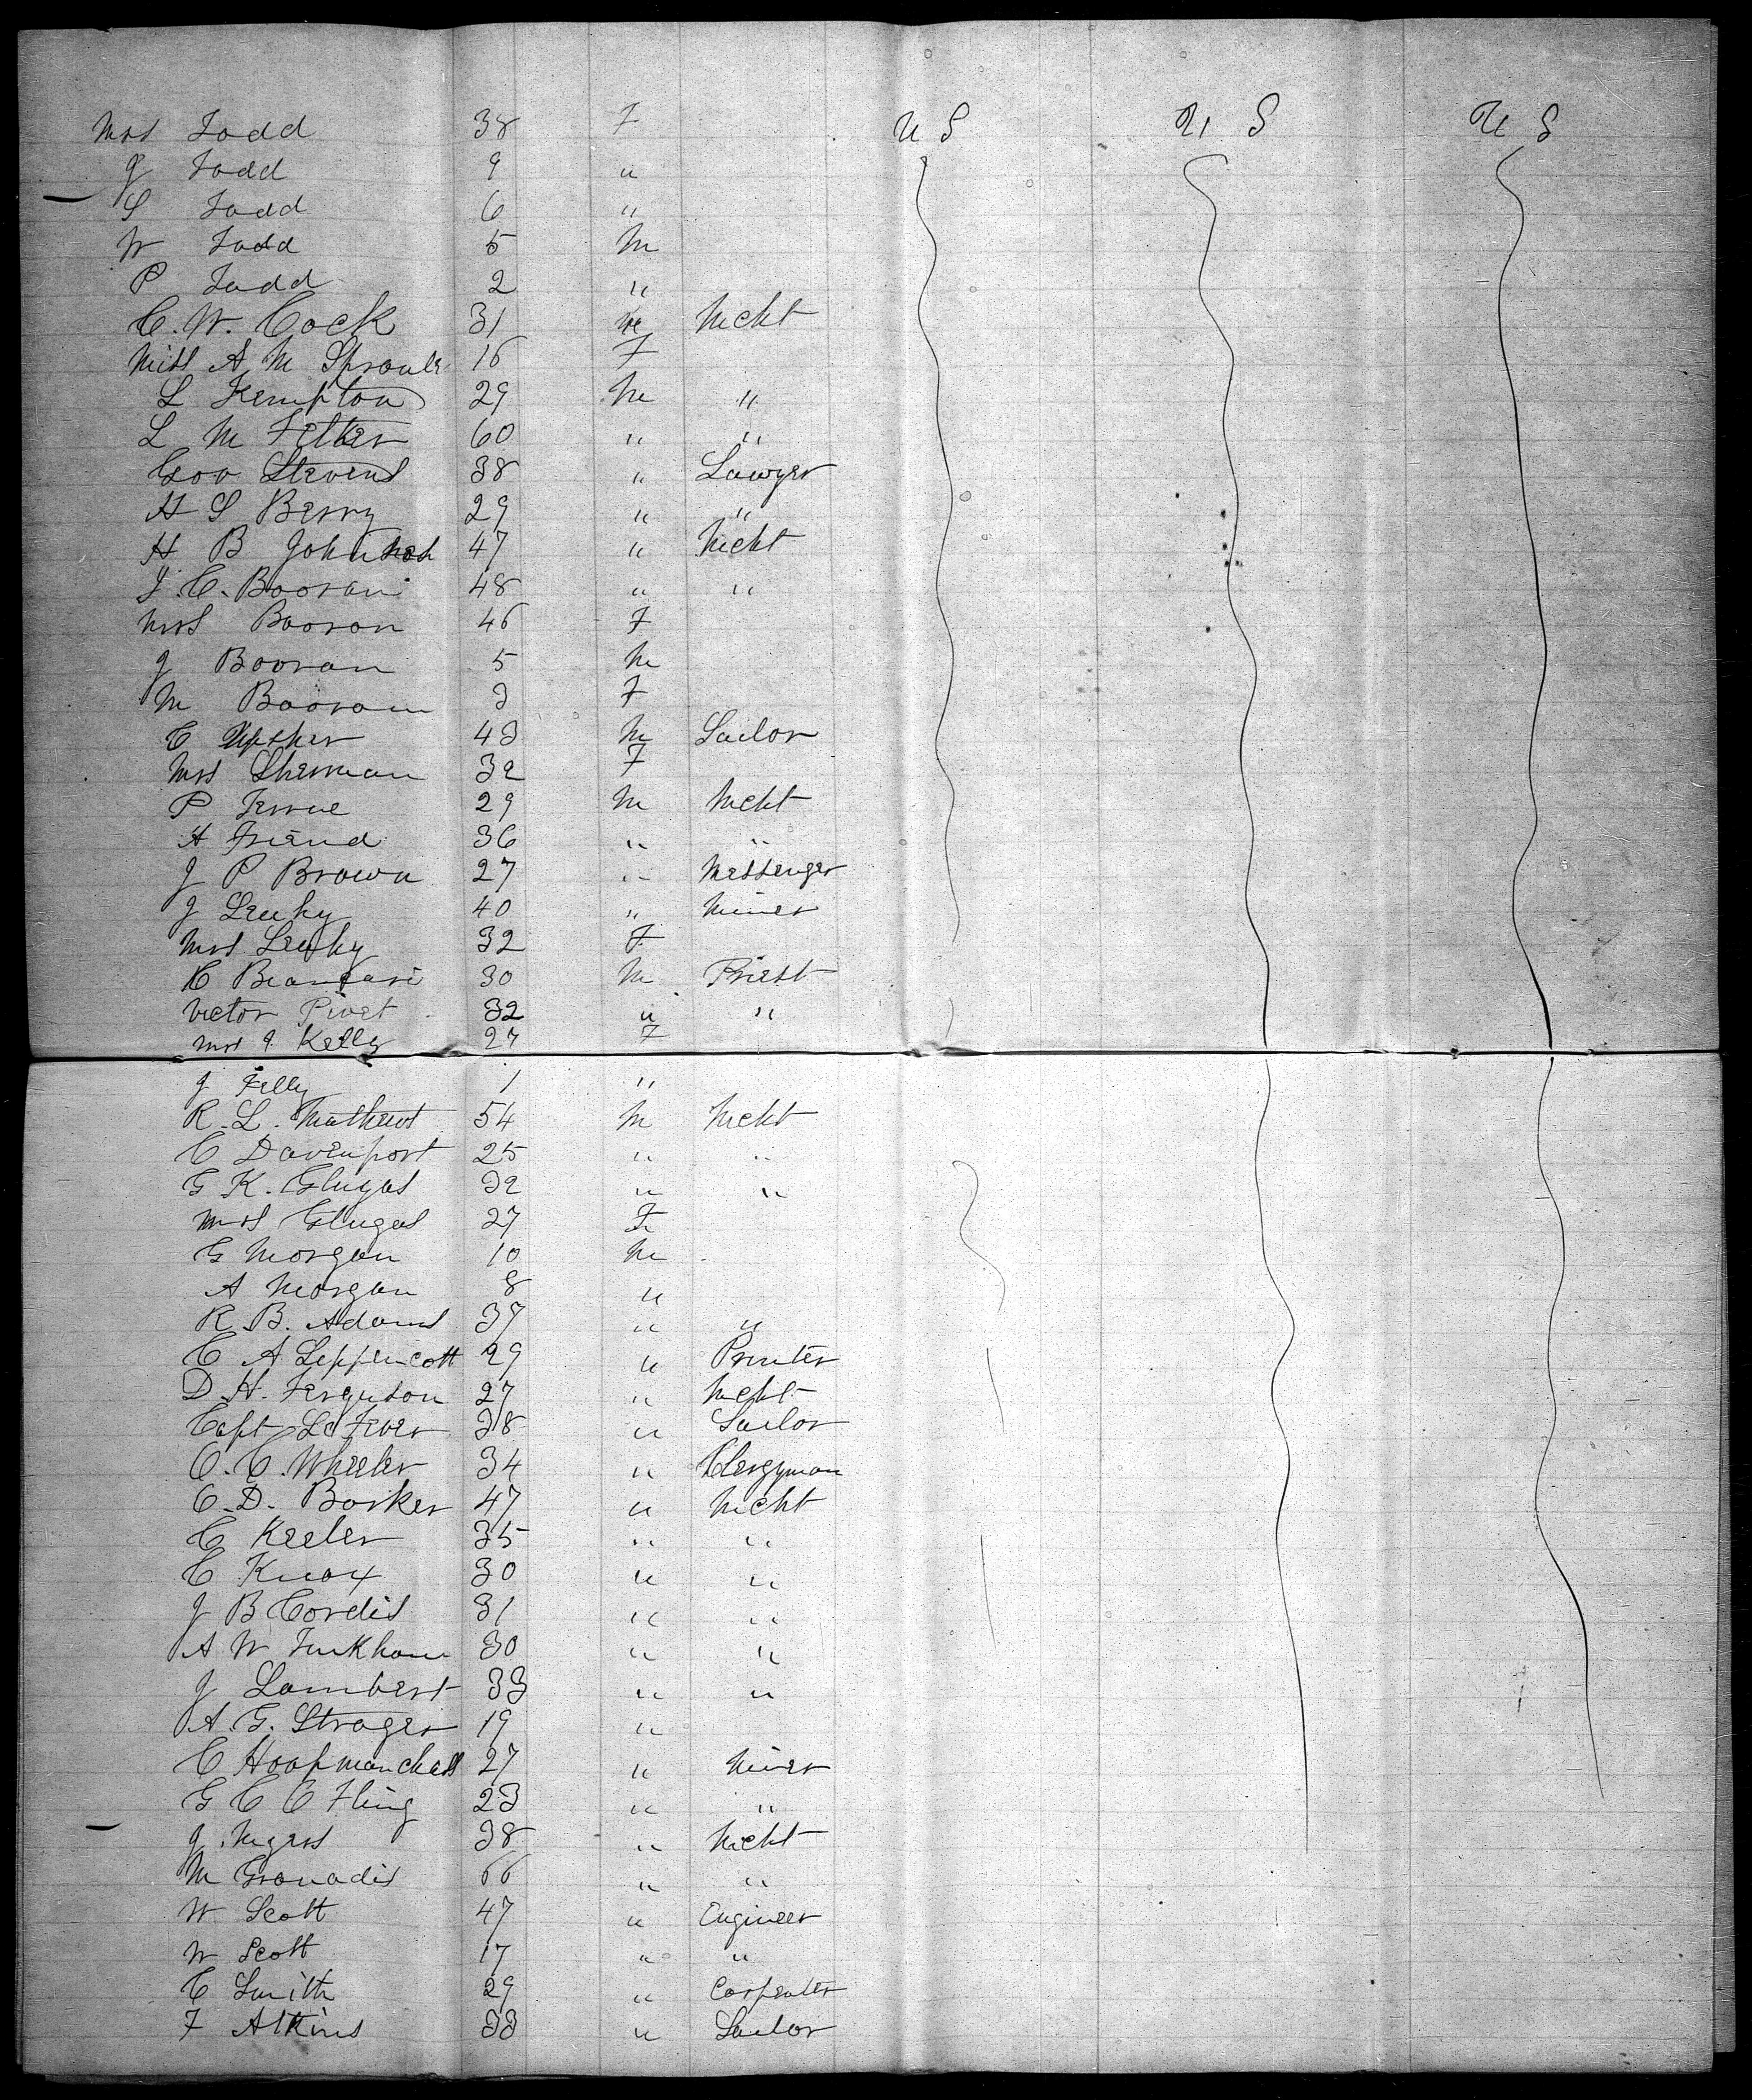 Mrs Todd 38 F U S U S U S
J Todd 9 "
S Todd 6 "
W Todd 5 M
P Todd 2 "
C. W. Cock 31 M Mcht
Miss A M Sproule 16 F
L Kempton 29 M "
L M Felker 60 " "
Gov Stevens 38 " Lawyer
H S Berry 29 " "
H B Johnson 47 " Mcht
J. C. Booram 48 " "
Mrs Booram 46 F
J Booram 5 M
M Booram 3 F
C Upsher 43 M Sailor
Mrs Sherman 32 F
P 29 M Mcht
A Friend 36 " "
J P Brown 27 " Messenger
J Leahy 40 " Miner
Mrs Leahy 32 F
30 M Priest
Victor Pivet 32 " "
Mrs J Kelly 27 F
J Kelly 1 "
R. L. Mathews 54 M Mcht
C Davenport 25 " "
G K. Glugas 32 " "
Mrs Glugas 27 F
G Morgan 10 M
A Morgan 8 "
R. B. Adams 37 " "
C A Leppencott 29 " Printer
D. H. Ferguson 27 " Mcht
Capt Le Fever 38 " Sailor
O. C. Wheeler 34 " Clergyman
C. D. Barker 47 " Mcht
C Keeler 35 " "
C Knox 30 " "
J B Cordis 31 " "
A W Tinkham 30 " "
J Lambert 33 " "
A. G. Strager 19 "
C Hoopmanchass 27 " Miner
G C C Fling 23 " "
J. Myers 38 " Mcht
M Granadis 66 " "
W Scott 47 " Engineer
W Scott 17 " "
C Smith 29 " Carpenter
F Atkins 33 " Sailor